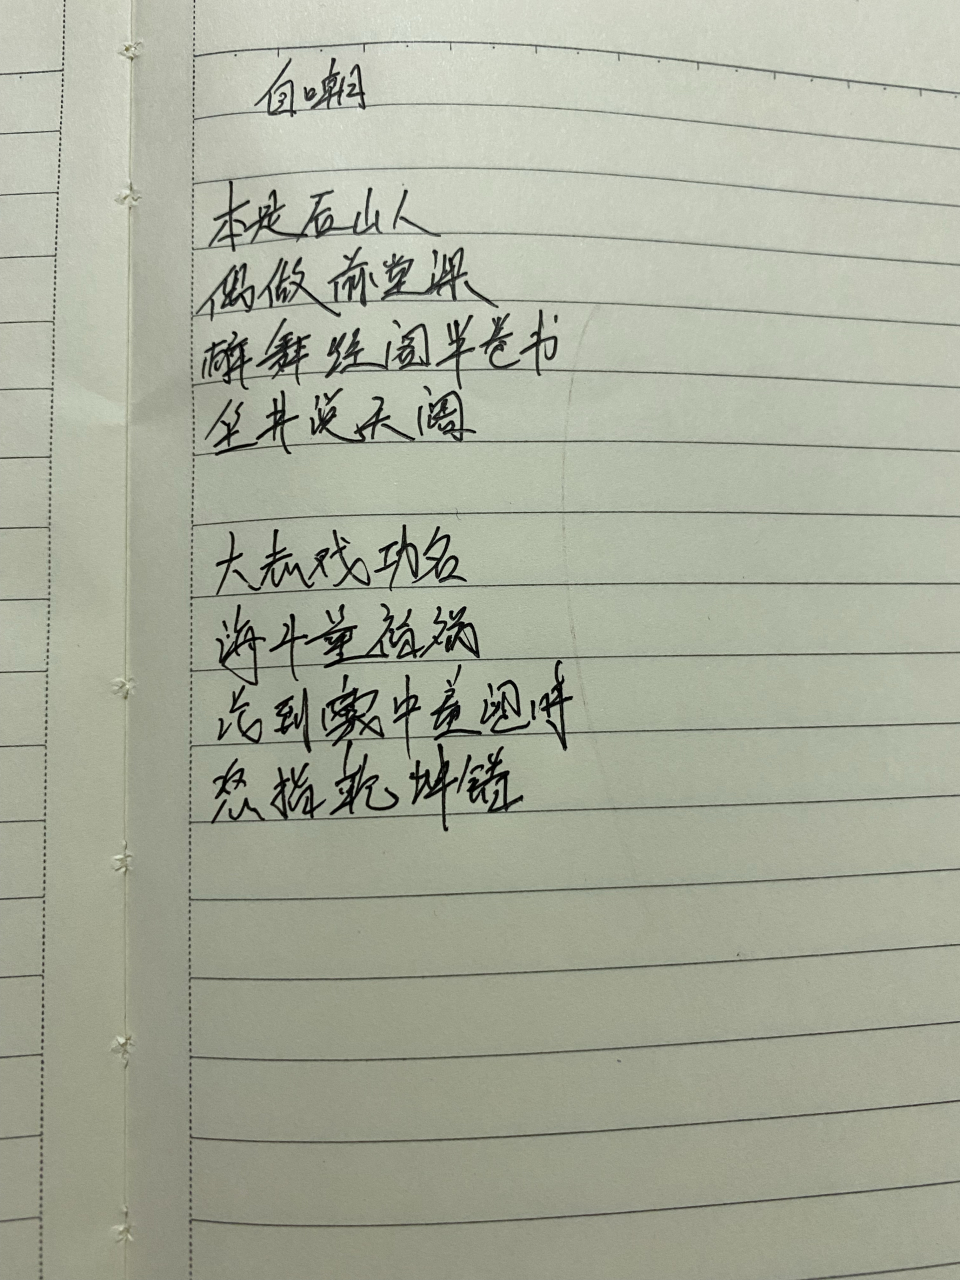 自嘲
本是后山人
偶做前堂课
醉舞经阁半卷书
坐井说天阔
大志戏功名
海斗量福祸
论到囊中羞涩时
怒指乾坤错